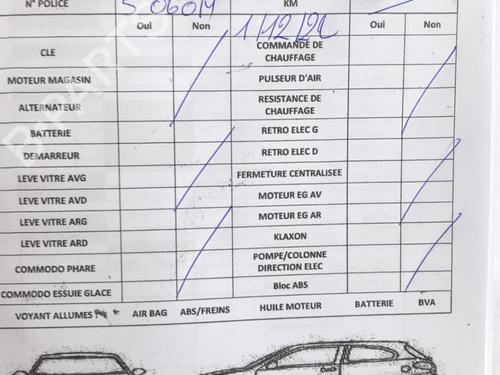 N° POLICE KM
Oui Non Oui Non
CLE COMMANDE DE CHAUFFAGE
MOTEUR MAGASIN PULSEUR D'AIR
ALTERNATEUR RESISTANCE DE CHAUFFAGE
BATTERIE RETRO ELEC G
DEMARREUR RETRO ELEC D
LEVE VITRE AVG FERMETURE CENTRALISEE
LEVE VITRE AVD MOTEUR EG AV
LEVE VITRE ARG MOTEUR EG AR
LEVE VITRE ARD KLAXON
COMMODO PHARE POMPE/COLONNE DIRECTION ELEC
COMMODO ESSUIE GLACE Bloc ABS
VOYANT ALLUMES AIR BAG ABS/FREINS HUILE MOTEUR BATTERIE BVA